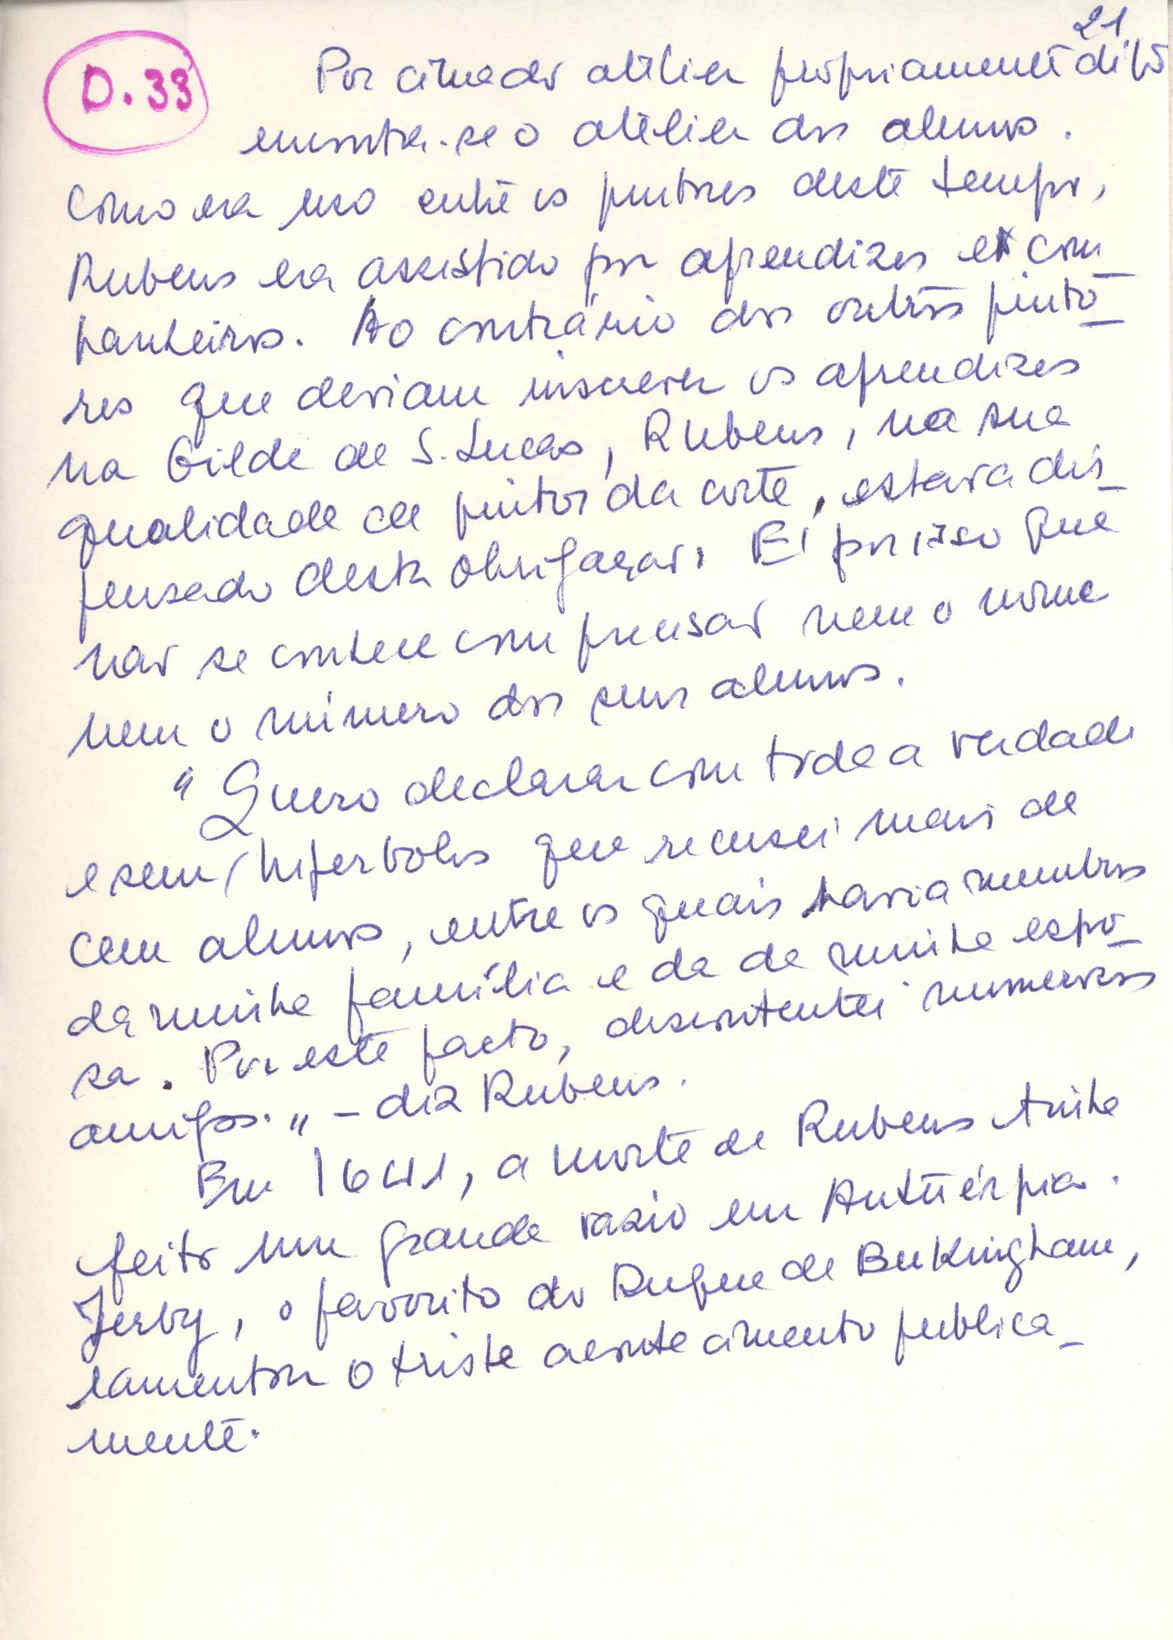 21
D. 33
Por cima do atelier propriamente dito
encontra-se o atelier dos alunos.
Como era uso entre os pintores deste tempo,
Rubens era assistido por aprendizes e com_
panheiros. Ao contrário dos outros pinto_
res que deviam inscrever os aprendizes
na Gilde de S. Lucas, Rubens, na sua
qualidade de pintor da corte, estava dis_
pensado desta obrigação. É por isso que
não se conhece com precisão nem o nome
nem o número dos seus alunos.
"Quero declarar com toda a verdade
e sem hiperboles que recusei mais de
cem alunos, entre os quais havia membros
da minha família e da de minha espo_
sa. Por este facto, descontentei numerosos
amigos." – diz Rubens.
Em 1641, a morte de Rubens tinha
feito um grande vazio em Antuérpia.
Jerby, o favorito do Duque de Bukingham,
lamentou o triste acontecimento publica_
mente.